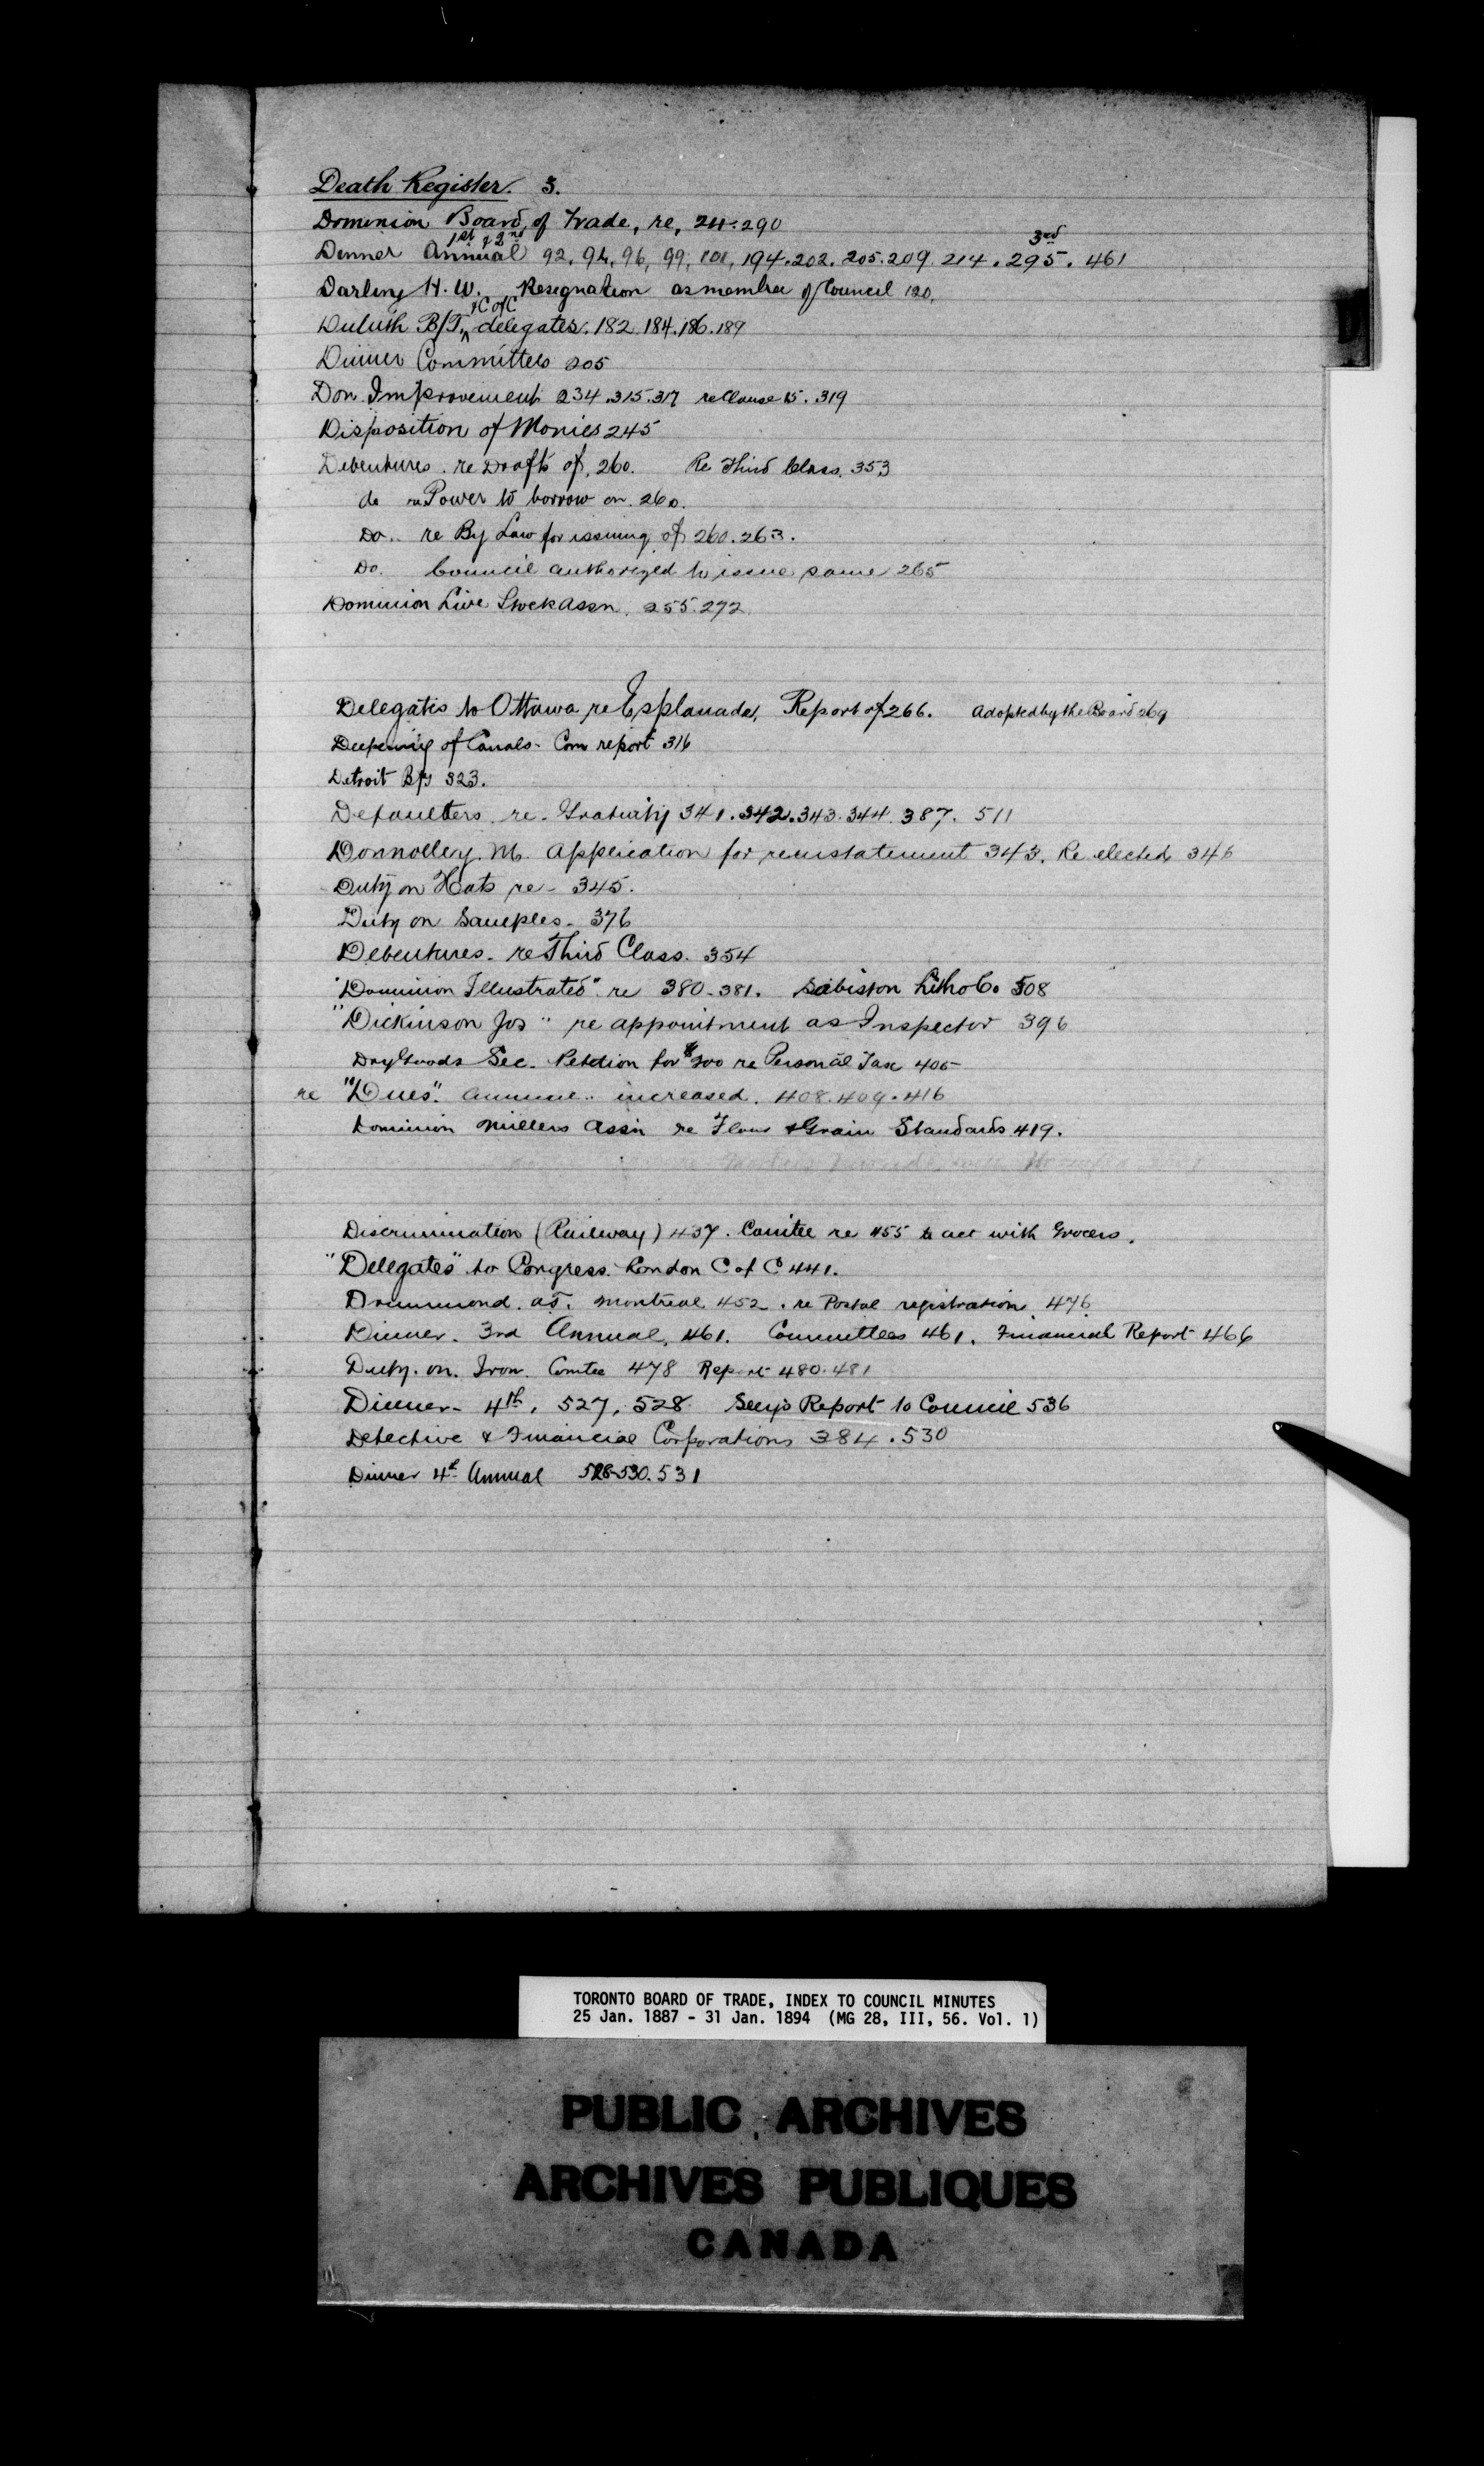 Death Register. 3.
Dominion Board of Trade, re, 24.290
1st & 2nd 3rd
Dinner Annual 92, 94, 96, 99, 101, 194.202.205.209.214.295.461
Darling H.W. Resignation as member of Council 120.
& C of C
Duluth B/T, delegates. 182.184.186.189
Dinner Committees 205
Don Improvement 234.315.317 re Clause 15.319
Disposition of Monies 245
Debentures. re Drafts of, 260. Re Third Class. 353
do re Power to borrow on. 260.
Do.. re By Law for issuing of 260.263.
Do. Council authorized to issue same 265
Dominion Live Stock Assn. 255.272
Delegates to Ottawa re Esplanade, Report of 266. Adopted by the Board 269
Deepening of Canals - Com report 316
Detroit B/T 323.
Defaulters. re. Gratuity 341.342.343.344.387.511
Donnolley. M. Application for reinstatement 343. Re elected 346
Duty on Hats re - 345.
Duty on Samples - 376
Debentures - re Third Class. 354
"Dominion Illustrated" re 380-381. Sabiston Litho Co. 508
"Dickinson Jos" re appointment as Inspector 396
Dry Goods Sec. Petition for $ re Personal Tax 405
re "Dues". Annual.. increased. 408.409.416
Dominion Millers Assn re Flour & Grain Standards 419.
Discrimination (Railway) 437. Comitee re 455 to act with Grocers.
"Delegates" to Congress. London C of C 441.
Drummond. Montreal 452. re Postal registration 476
Dinner. 3rd Annual, 461. Committees 461. Financial Report 466
Duty. on. Iron. Comtee 478 Report 480.481
Dinner - 4th, 527, 528 Secy's Report to Council 536
Detective & Financial Corporations 384.530
Dinner 4th Annual 528-530.531
D
TORONTO BOARD OF TRADE, INDEX TO COUNCIL MINUTES
25 Jan. 1887 - 31 Jan. 1894 (MG 28, III, 56. Vol. 1)
PUBLIC ARCHIVES
ARCHIVES PUBLIQUES
CANADA